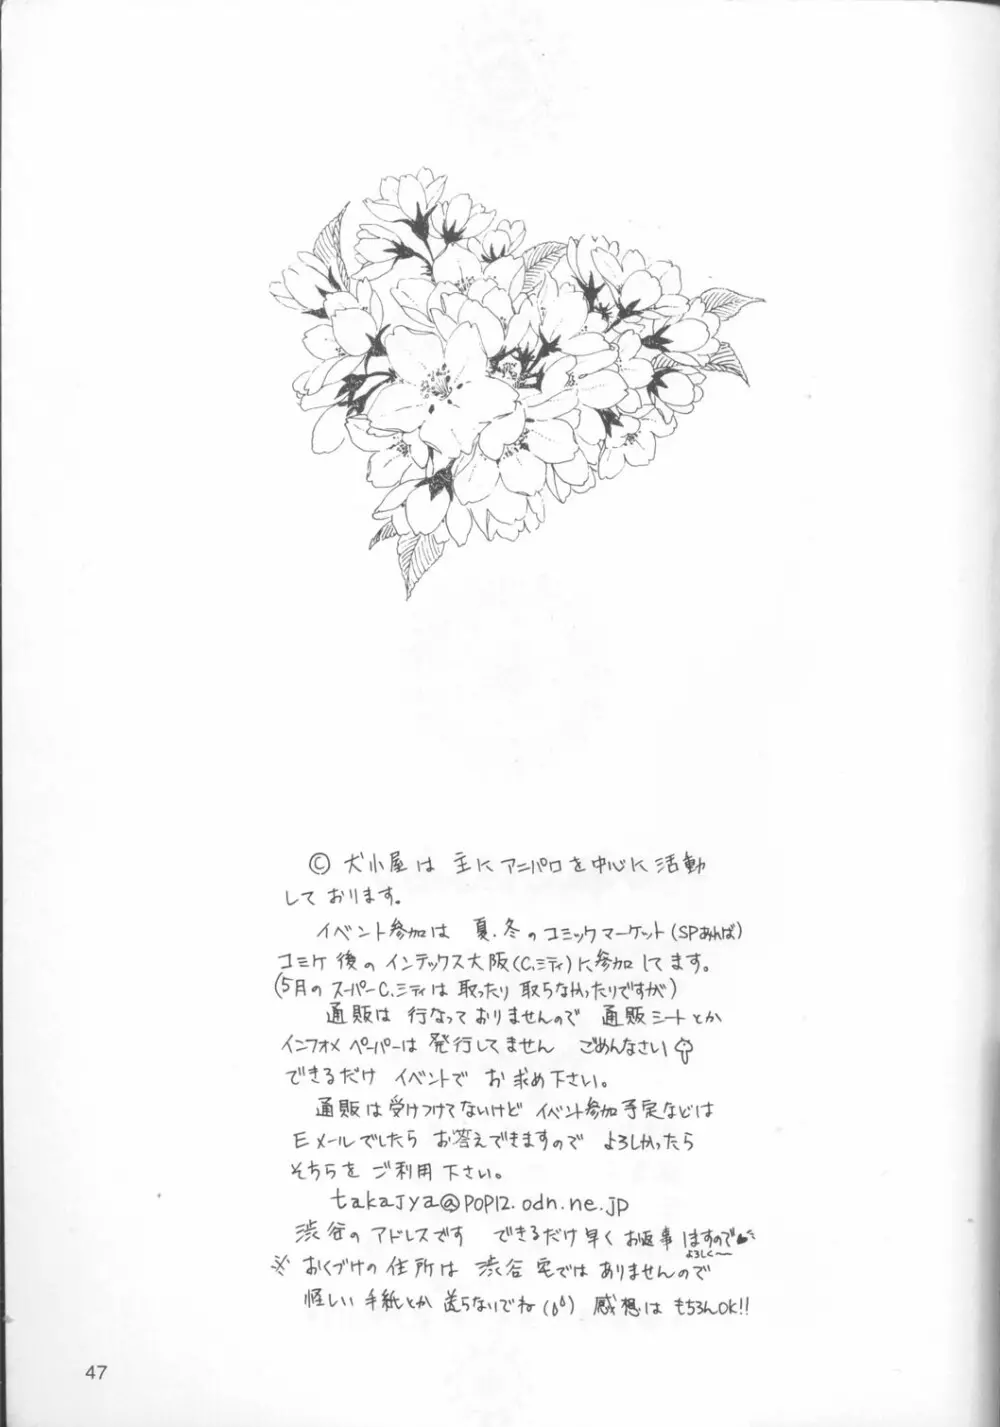 © 犬小屋は 主に アニパロを中心に 活動
して おります。
イベント参加は 夏・冬の コミックマーケット(SPあんば)
コミケ 後の インテックス大阪(C.シティ)に参加してます。
(5月の スーパーC.シティは 取ったり 取らなかったりですが)
通販は 行なっておりませんので 通販シートとか
インフォメ ペーパーは 発行してません ごめんなさい
できるだけ イベントで お求め下さい。
通販は受けつけてないけど イベント参加予定などは
Eメールでしたら お答えできますので よろしかったら
そちらを ご利用 下さい。
takajya@POP12.odn.ne.jp
渋谷の アドレスです できるだけ早く お返事 はますので
よろしく〜
※ おくづけの 住所は 渋谷 宅では ありませんので
怪しい 手紙とか 送らないでね 感想は もちろんOK!!
47